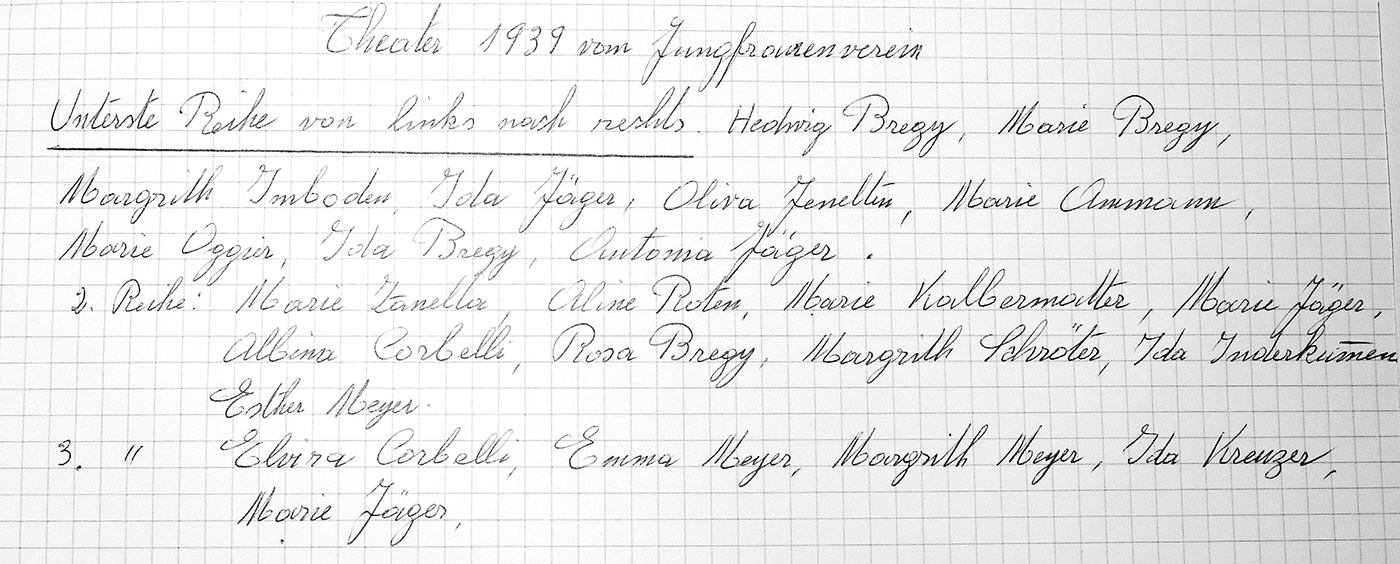 Theater 1939 vom Jungfrauenverein
Unterste Reihe von links nach rechts. Hedwig Bregy, Marie Bregy,
Margrith Imboden, Ida Jäger, Oliva Jeneltin, Marie Ammann,
Marie Oggier, Ida Bregy, Antonia Jäger.
2. Reihe: Marie Zanella, Aline Roten, Marie Kalbermatter, Marie Jäger,
Albina Corbelli, Rosa Bregy, Margrith Schröter, Ida Inderkum̅en
Esther Meyer.
3. " Elvira Corbelli, Emma Meyer, Margrith Meyer, Ida Kreuzer,
Marie Jäger,